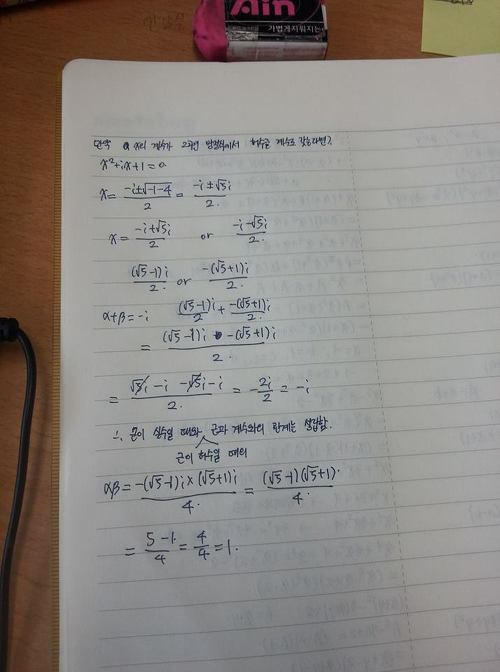 Ain
가볍게지워지는
만약 x의 계수가 2차인 방정식에서 허수를 계수로 갖는다면?
x²+ix+1=0
x= (-i±√(-1-4))/2 = (-i±√5i)/2.
x= (-i+√5i)/2 or (-i-√5i)/2.
(√5-1)i/2. or -(√5+1)i/2.
α+β=-i (√5-1)i/2 + -(√5+1)i/2.
= ((√5-1)i -(√5+1)i)/2.
= (√5i-i -√5i-i)/2. = -2i/2 = -i
∴ 근이 실수일 때와 근과 계수와의 관계는 성립함.
근이 허수일 때의
αβ= (-(√5-1)i×(√5+1)i)/4. = ((√5-1)(√5+1).)/4.
= (5-1.)/4 = 4/4 =1.